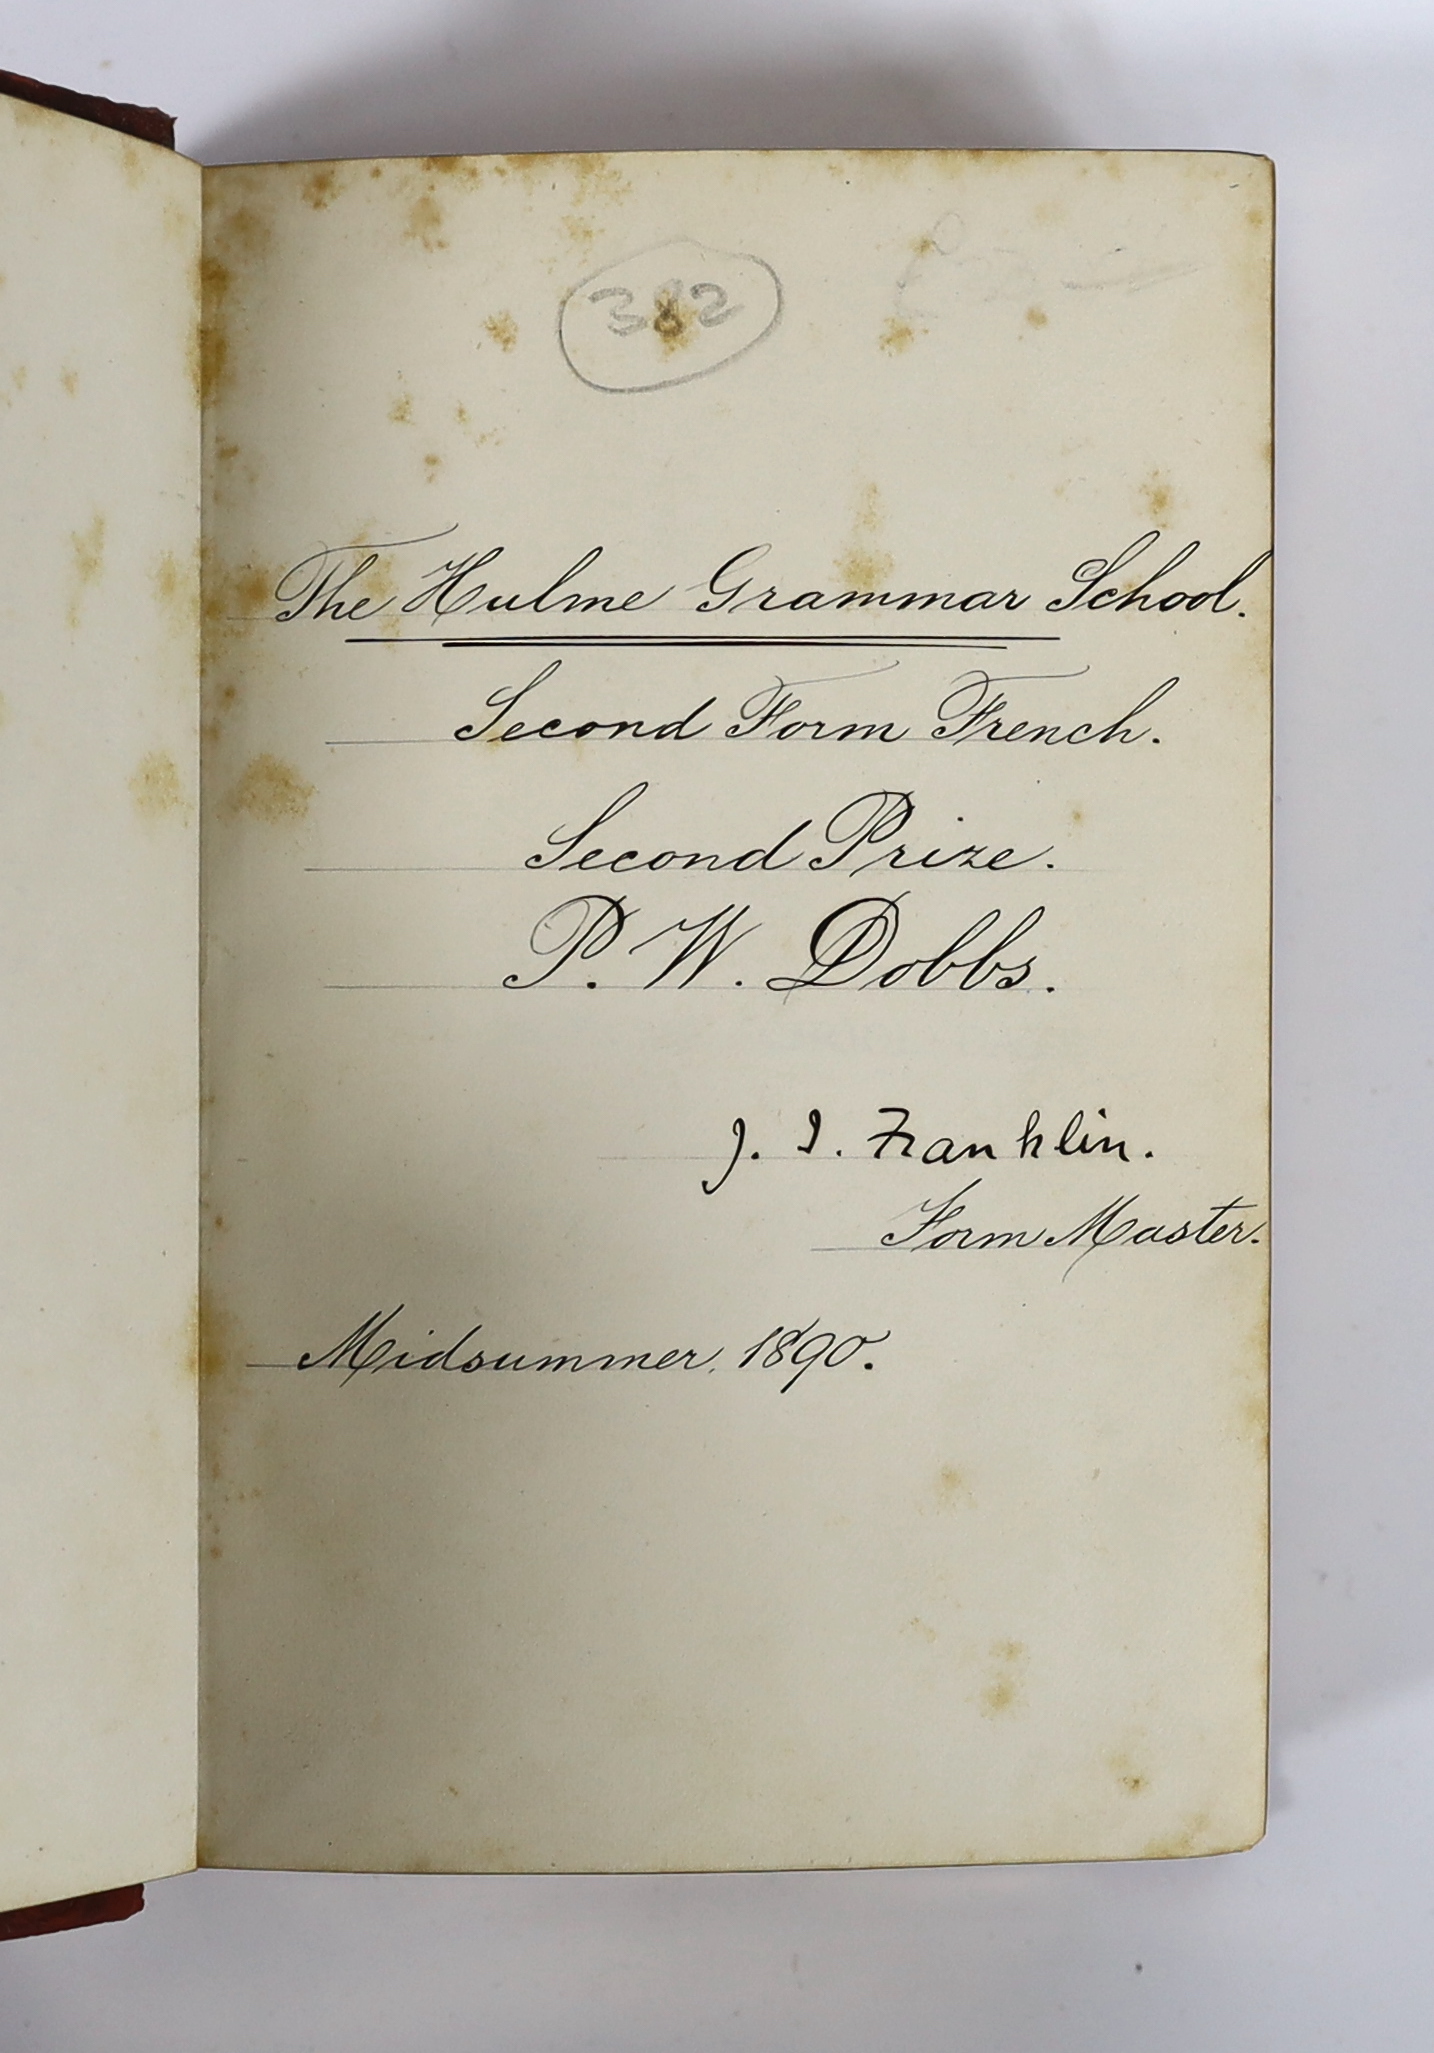 382
The Hulme Grammar School.
Second Form French.
Second Prize.
P. W. Dobbs.
J. I. Franklin.
Form Master.
Midsummer, 1890.